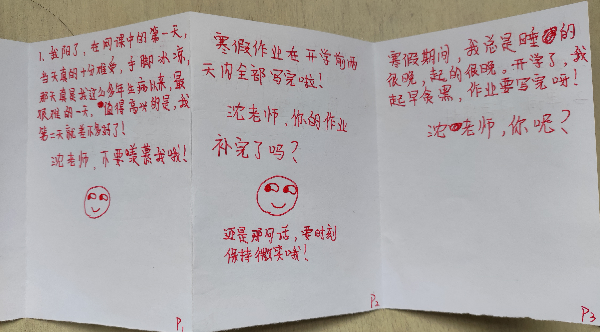 1. 我阳了，在网课中的第一天，
当天真的十分难受，手脚冰凉，
那天算是我这么多年生病以来，最
艰难的一天。值得高兴的是，我
第二天就差不多好了！
沈老师，不要羡慕我哦！
P1
寒假作业在开学前两
天内全部写完啦！
沈老师，你的作业
补完了吗？
还是那句话，要时刻
保持微笑哦！
P2
寒假期间，我总是睡的
很晚，起的很晚。开学了，我
起早贪黑，作业要写完呀！
沈老师，你呢？
P3